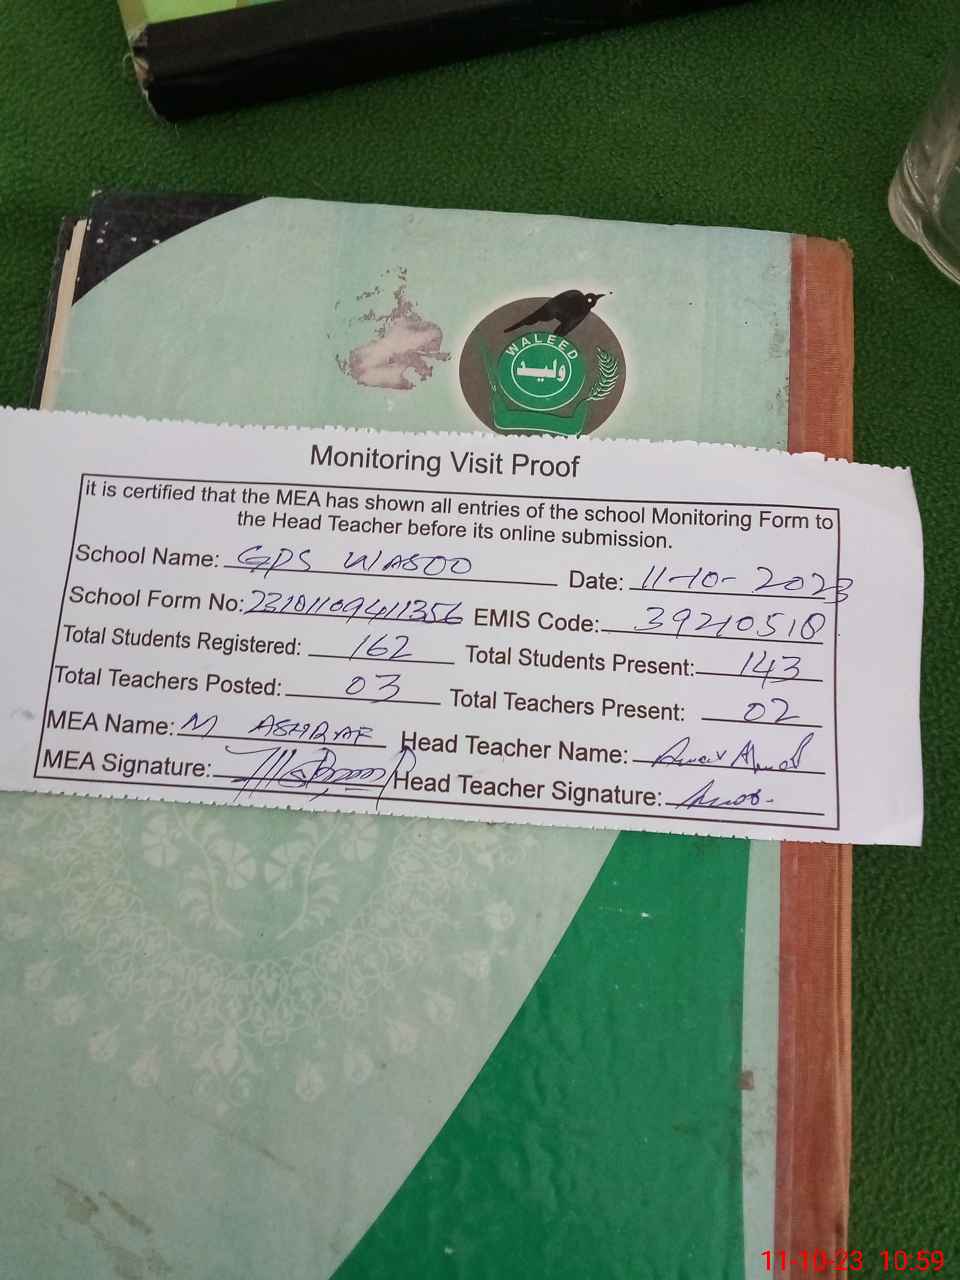 WALEED
وليد
Monitoring Visit Proof
it is certified that the MEA has shown all entries of the school Monitoring Form to
the Head Teacher before its online submission.
School Name: GPS WASOO Date: 11-10-2023
School Form No: 23101109411356 EMIS Code: 39210518
Total Students Registered: 162 Total Students Present: 143
Total Teachers Posted: 03 Total Teachers Present: 02
MEA Name: M ASHRAF Head Teacher Name:
MEA Signature: Head Teacher Signature:
11-10-23 10:59